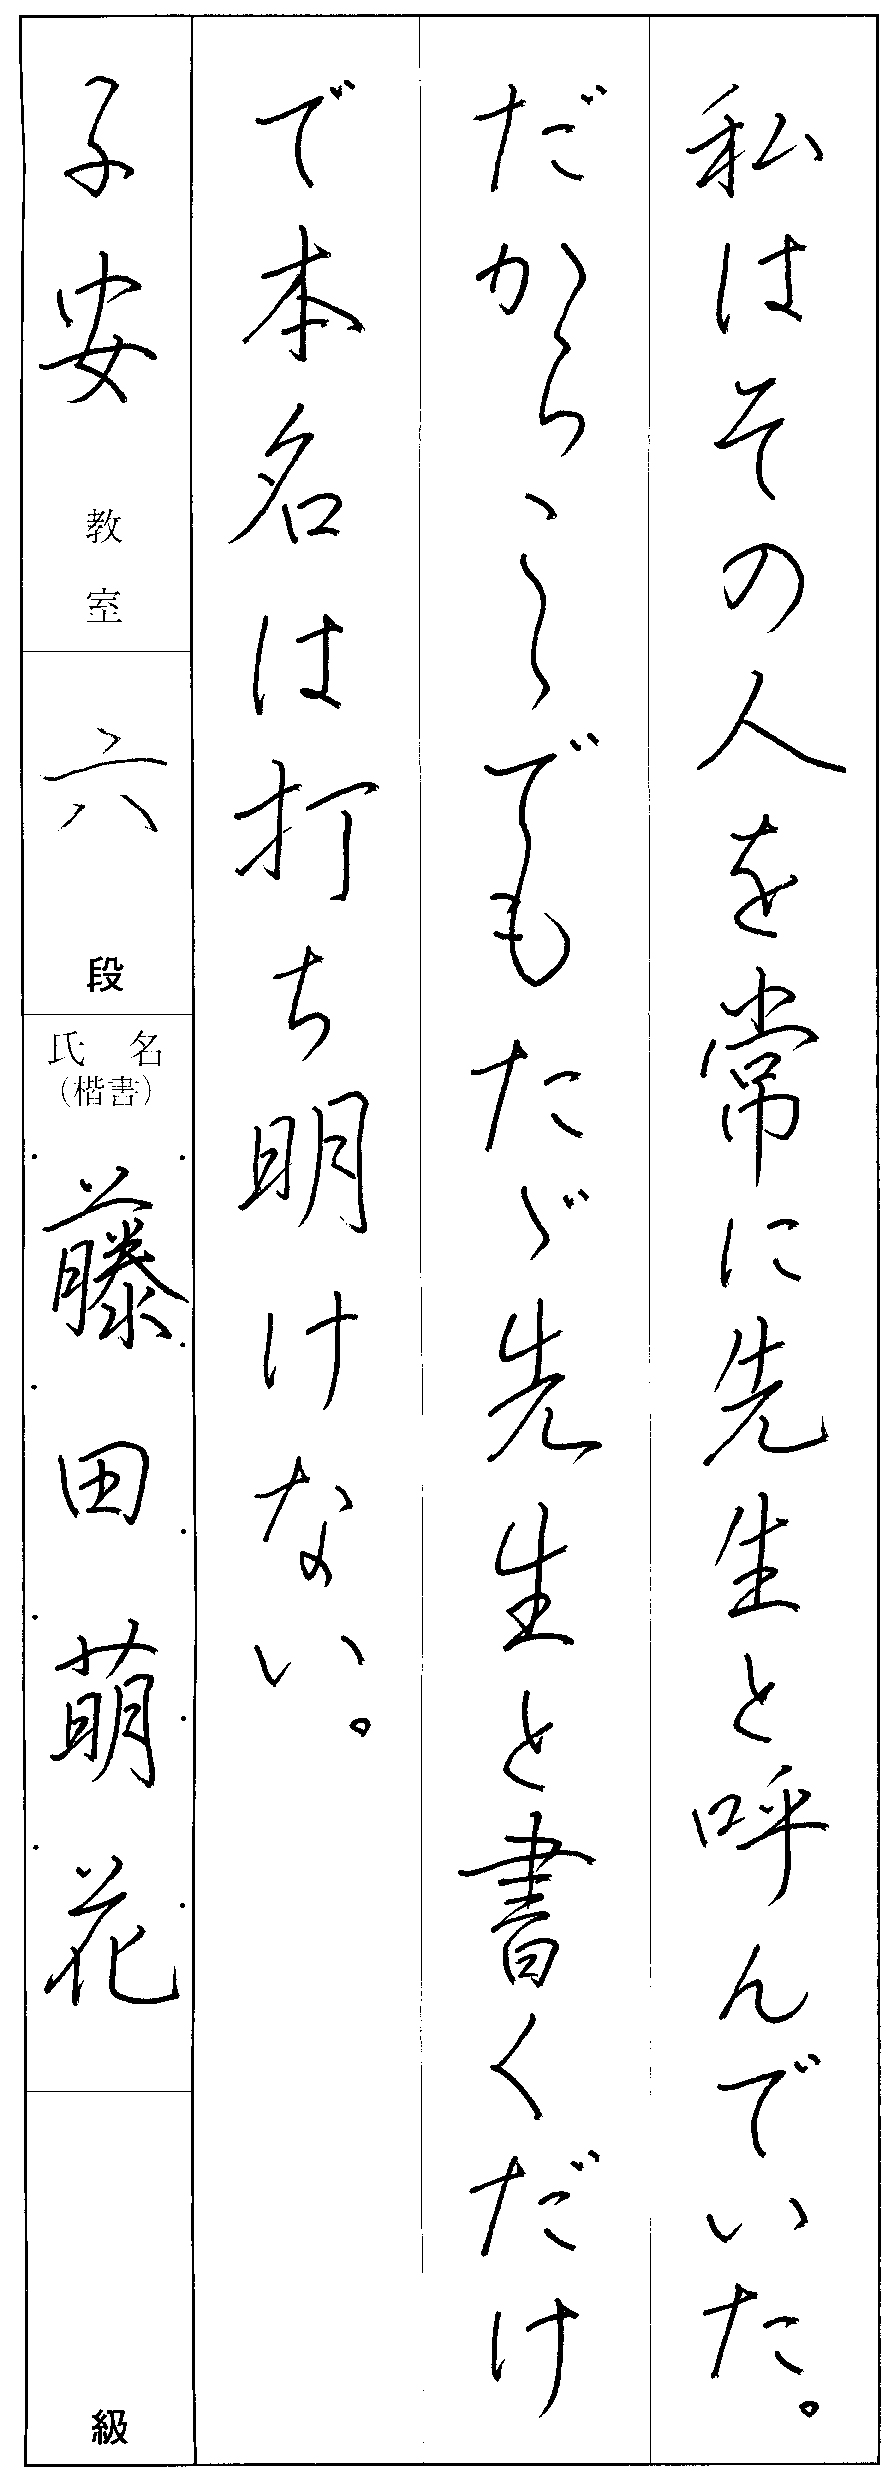 私はその人を常に先生と呼んでいた。
だからこゝでもたゞ先生と書くだけ
で本名は打ち明けない。
子安教室
六段
氏名
(楷書)
藤田萌花
級